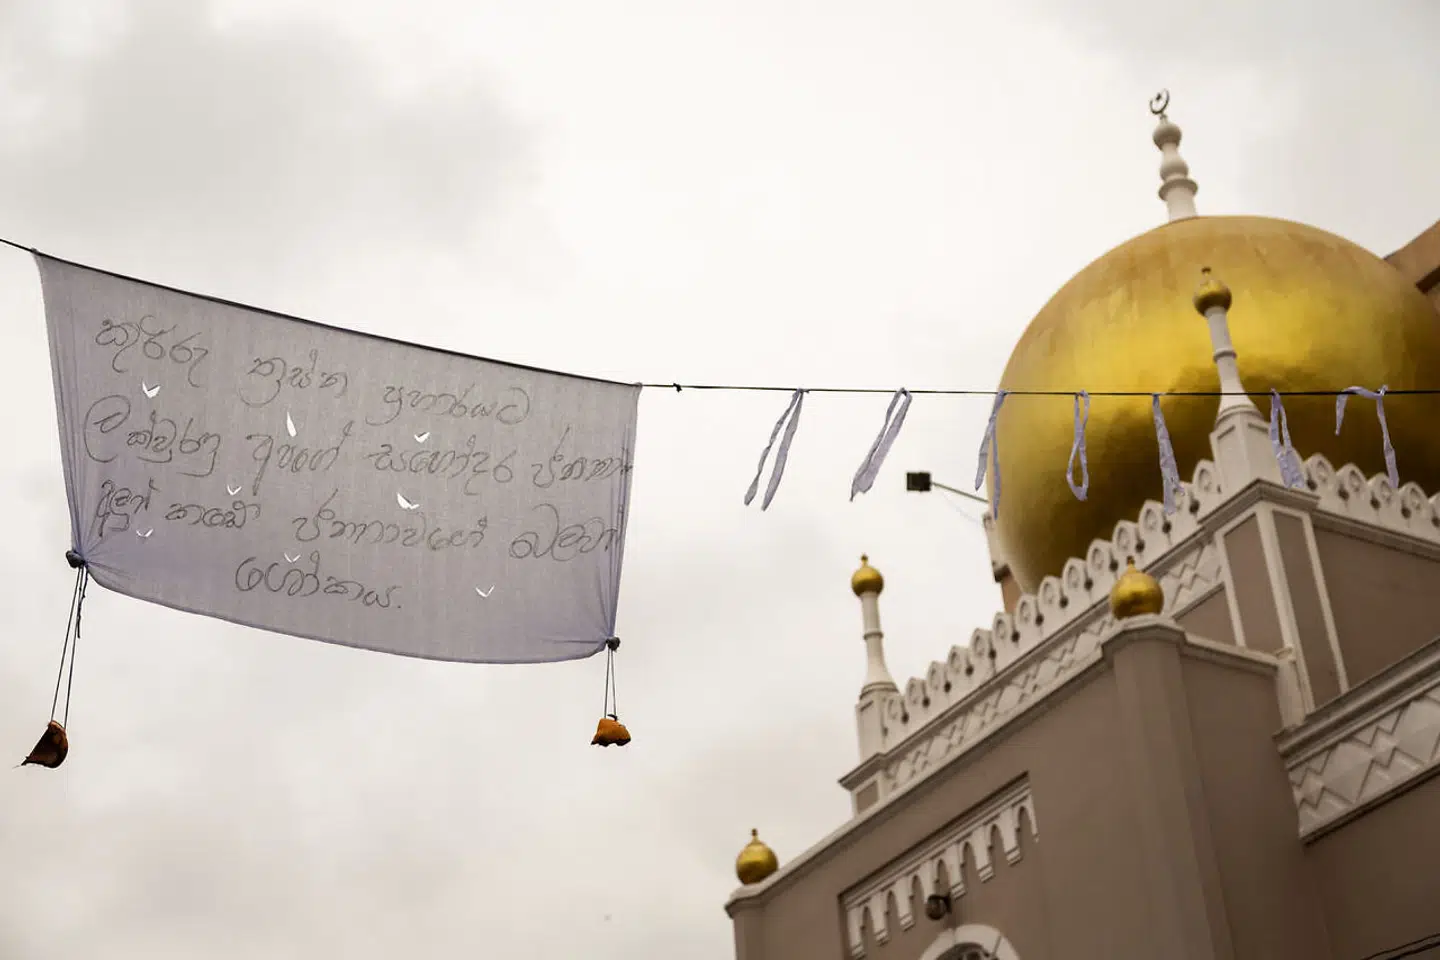 කුරිරු ත්‍රස්ත ප්‍රහාරයට
ලක්වුණු අපගේ සහෝදර ජනතා
අලුත් කඩේ ජනතාවගේ බලවත්
ශෝකය.